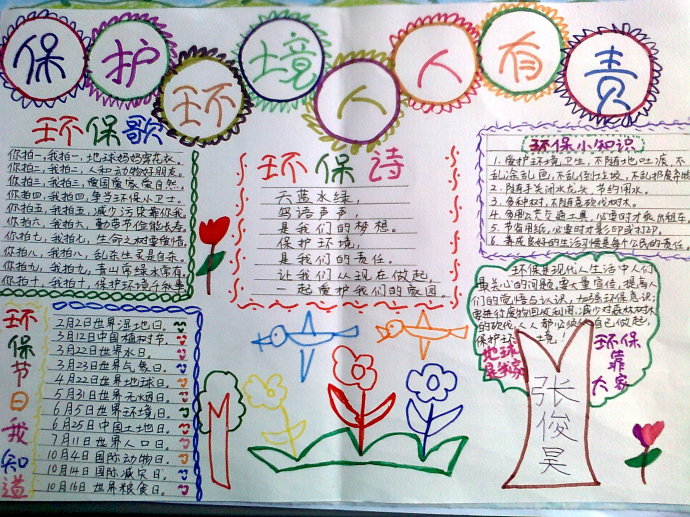 保护环境人人有责
环保歌
你拍一,我拍一,地球妈妈穿花衣。
你拍二,我拍二,人和动物好朋友。
你拍三,我拍三,爱国爱家爱自然。
你拍四,我拍四,争当环保小卫士。
你拍五,我拍五,减少污染靠你我。
你拍六,我拍六,勤劳节俭能长寿。
你拍七,我拍七,生命之树要爱惜。
你拍八,我拍八,乱杀生灵是自杀。
你拍九,我拍九,青山常绿水常有。
你拍十,我拍十,保护环境
环保诗
天蓝水绿,
鸟语声声,
是我们的梦想。
保护环境,
是我们的责任。
让我们从现在做起,
一起爱护我们的家园。
环保小知识
1.爱护环境卫生,不随地吐痰,不
乱涂乱画,不乱倒垃圾,不乱扔废弃物
2.随手关闭水龙头,节约用水。
3.多种树,不随意砍伐树木。
4.多用公共交通工具,必要时才乘出租车。
5.节省用纸,必要时才影印或打印。
6.养成良好的生活习惯是每个公民的责任。
环保节日我知道
2月2日世界湿地日。
3月12日中国植树节。
3月22日世界水日。
3月23日世界气象日。
4月22日世界地球日。
5月31日世界无烟日。
6月5日世界环境日。
6月25日中国土地日。
7月11日世界人口日。
10月4日国际动物日。
10月14日国际减灾日。
10月16日世界粮食日。
环保是现代人生活中人们
最关心的问题,要大量宣传,提高人
们的觉悟与认识,加强环保意识;
要进行废物回收利用,减少对森林树木
的砍伐,人人都必须从自己做起,
保护环境
地球是我家
环保靠大家
张俊昊